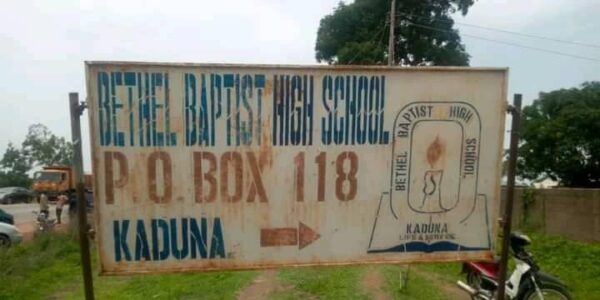 BETHEL BAPTIST HIGH SCHOOL
P.O. BOX 118
KADUNA
BETHEL BAPTIST HIGH SCHOOL
KADUNA